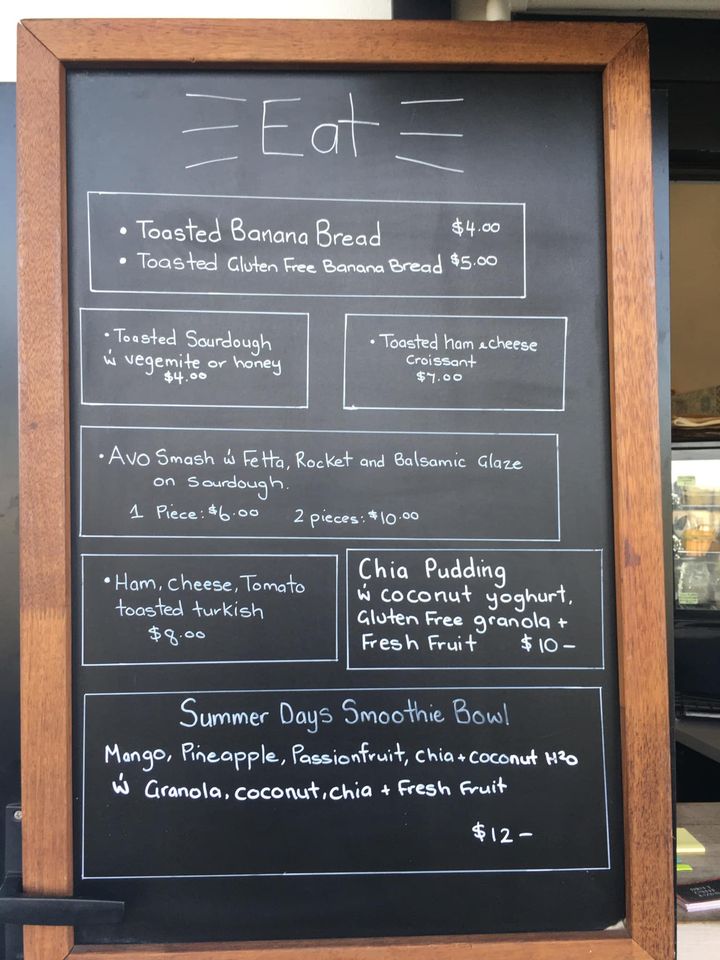 Eat
• Toasted Banana Bread $4.00
• Toasted Gluten Free Banana Bread $5.00
• Toasted Sourdough
ẃ vegemite or honey
$4.00
• Toasted ham & cheese
Croissant
$7.00
• Avo Smash ẃ Fetta, Rocket and Balsamic Glaze
on Sourdough.
1 Piece: $6.00 2 pieces: $10.00
• Ham, Cheese, Tomato
toasted turkish
$8.00
Chia Pudding
ẃ coconut yoghurt,
Gluten Free granola +
Fresh Fruit $10 –
Summer Days Smoothie Bowl
Mango, Pineapple, Passionfruit, Chia + Coconut H2O
ẃ Granola, coconut, chia + Fresh Fruit
$12 –